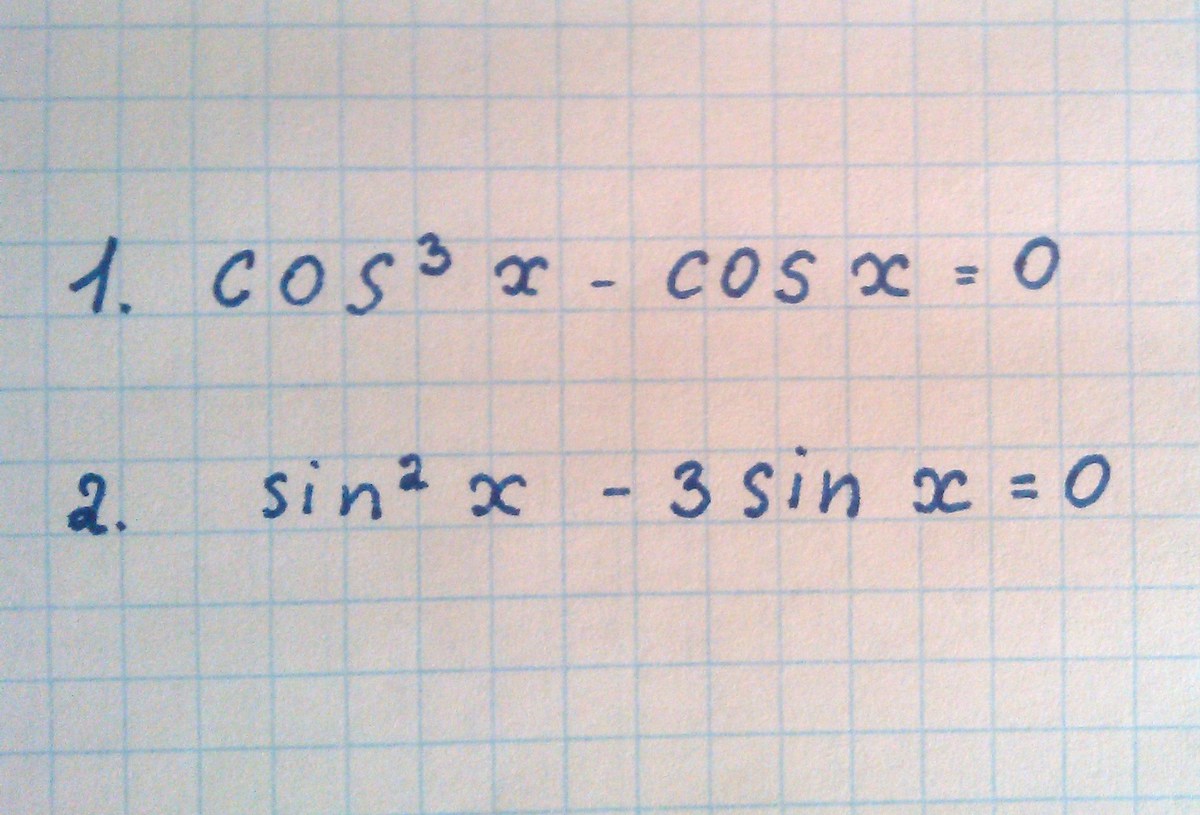 1. cos³ x - cos x = 0
2. sin² x - 3 sin x = 0